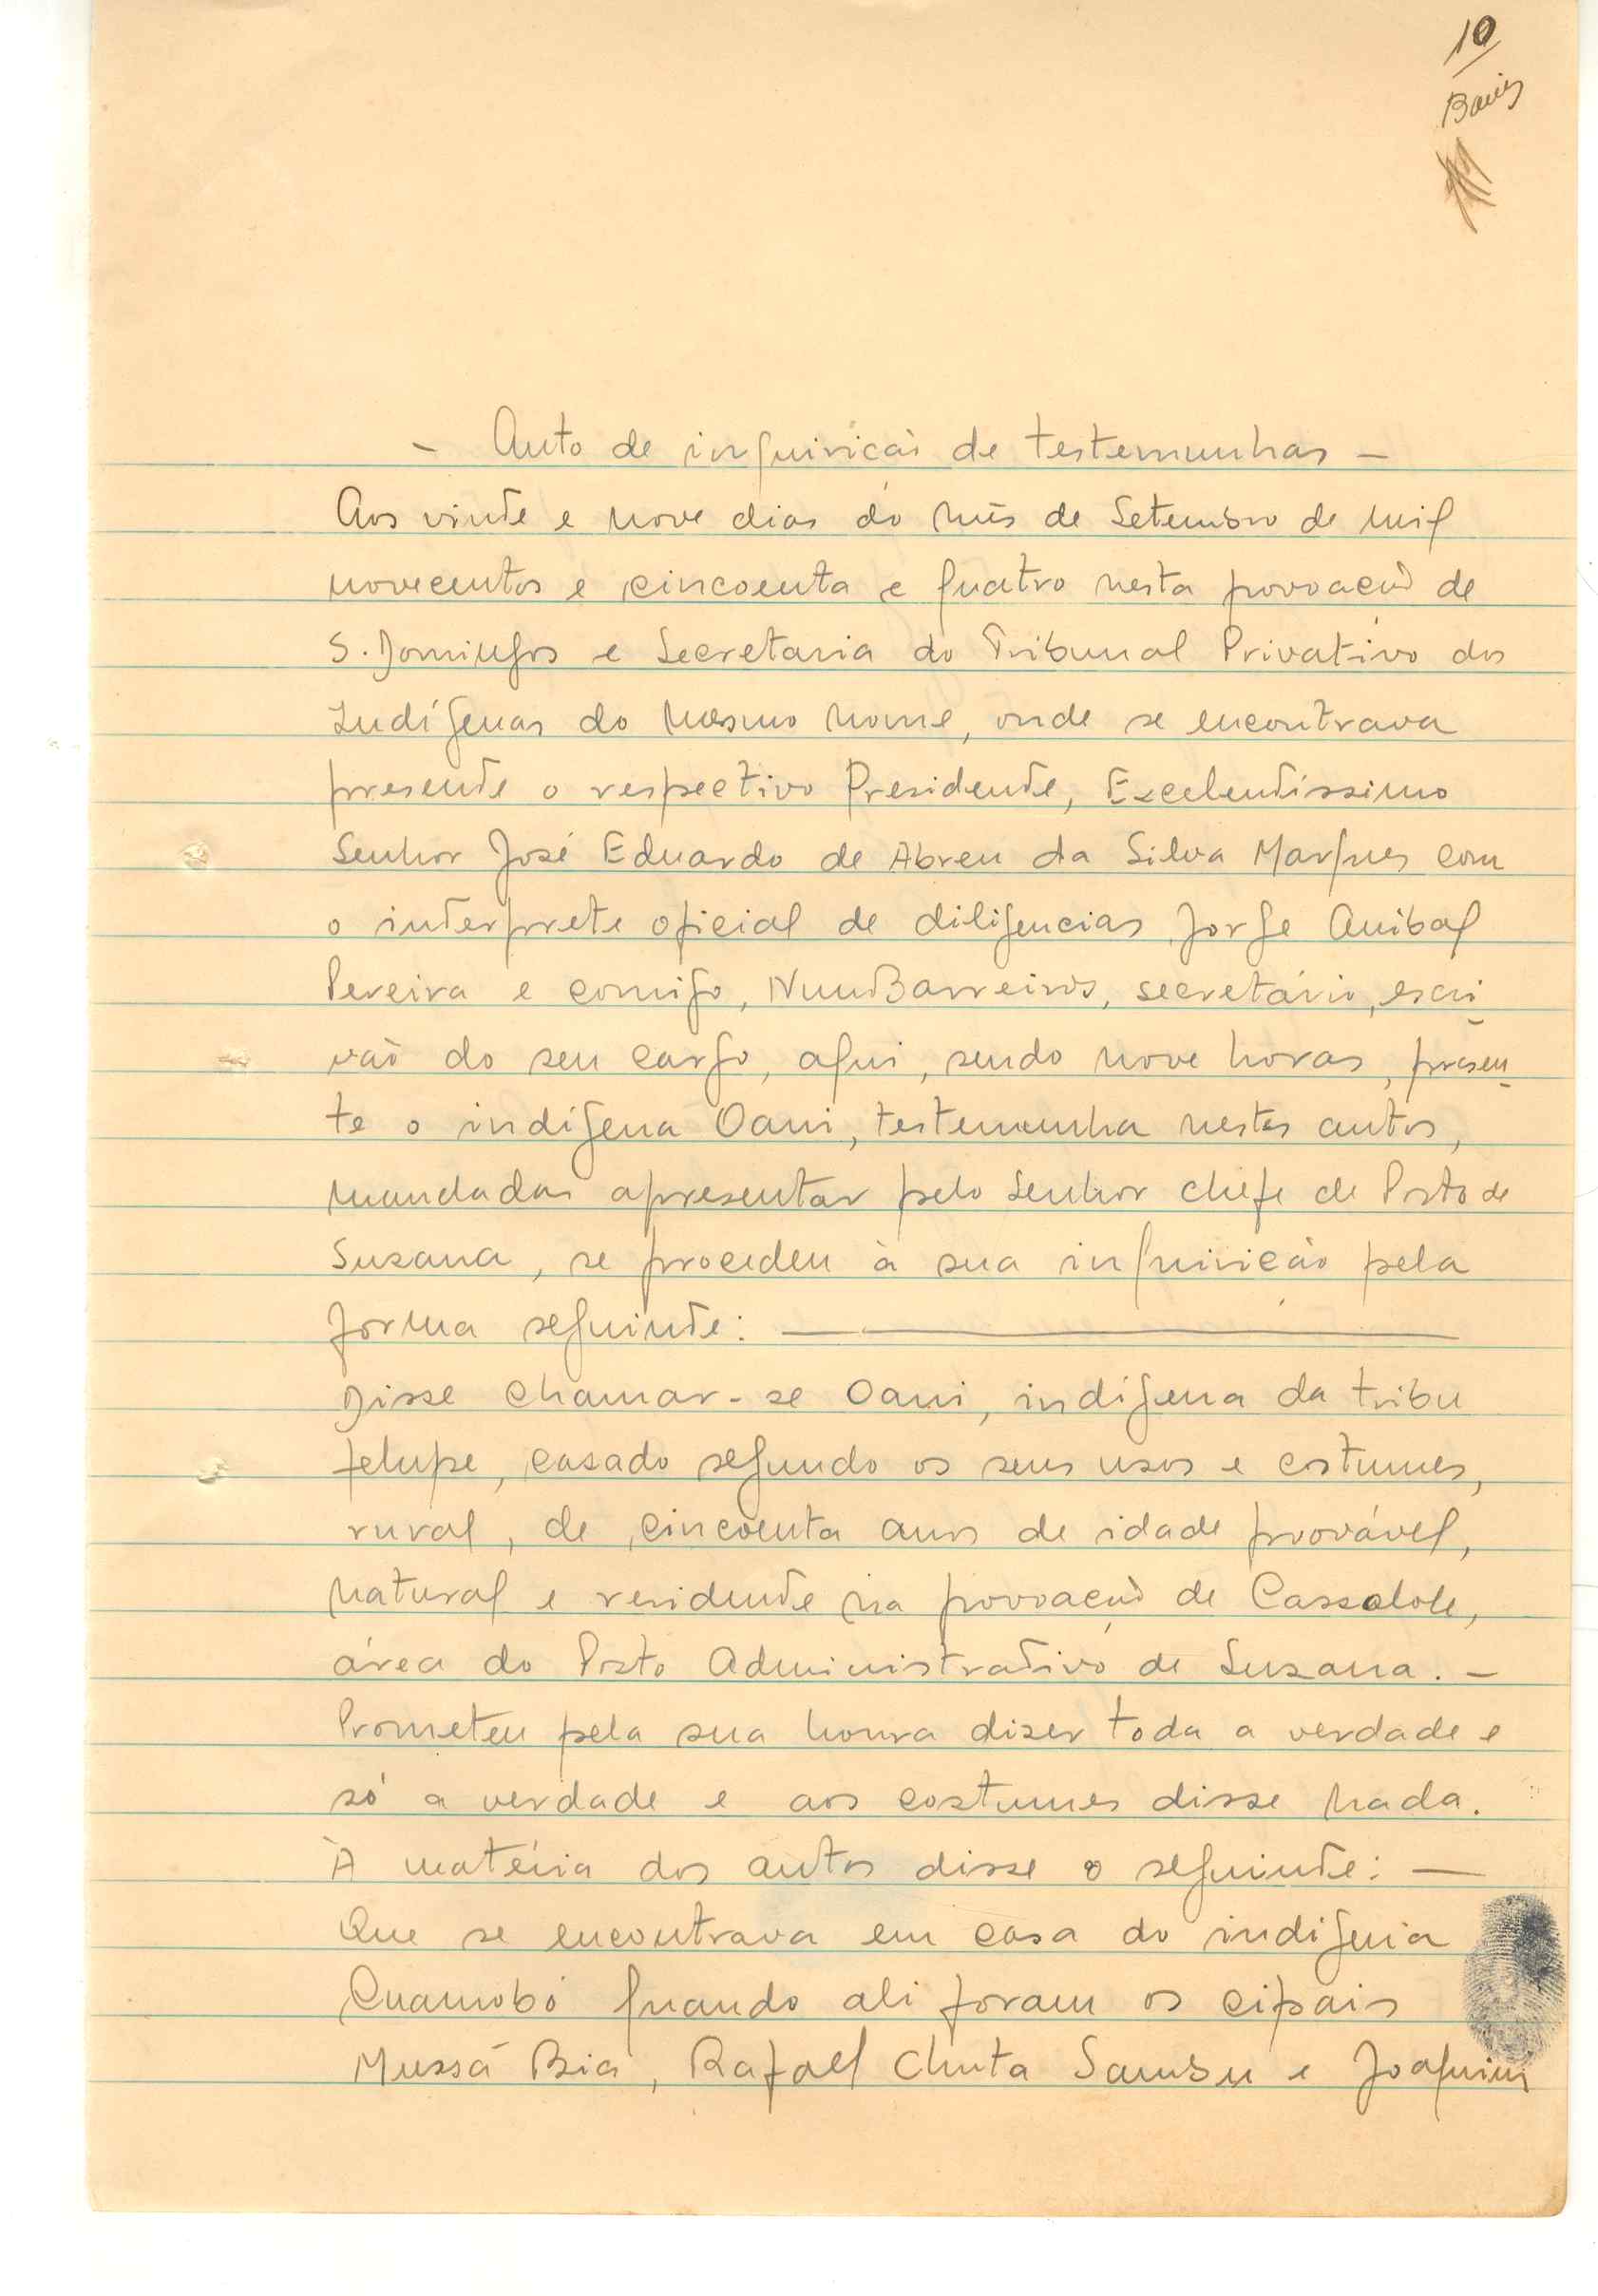 10
- Auto de inquirição de testemunhas -
Aos vinte e nove dias do mês de Setembro de mil
novecentos e cincoenta e quatro nesta povoação de
S. Domingos e Secretaria do Tribunal Privativo dos
Indígenas do mesmo nome, onde se encontrava
presente o respectivo Presidente, Excelentíssimo
Senhor José Eduardo de Abreu da Silva Marques com
o interprete oficial de diligencias Jorge Anibal
Pereira e comigo, Nuno Barreiros, secretário, escri
vão do seu cargo, aqui, sendo nove horas, presen
te o indígena Oani, testemunha nestes autos,
mandadas apresentar pelo Senhor chefe de Posto de
Suzana, se procedeu à sua inquirição pela
forma seguinte:
Disse chamar-se Oani, indígena da tribu
felupe, casado segundo os seus usos e costumes,
rural, de cincoenta anos de idade provável,
natural e residente na povoação de Cassolole,
área do Posto Administrativo de Suzana. -
Prometeu pela sua honra dizer toda a verdade e
só a verdade e aos costumes disse nada.
À matéria dos autos disse o seguinte: -
Que se encontrava em casa do indigena
Quamobó quando ali foram os cipais
Mussá Biá, Rafael Chuta Sambu e Joaquim